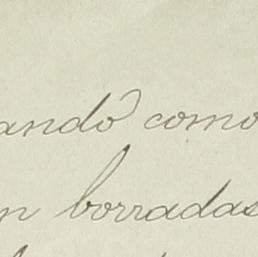 ando como
n borradas